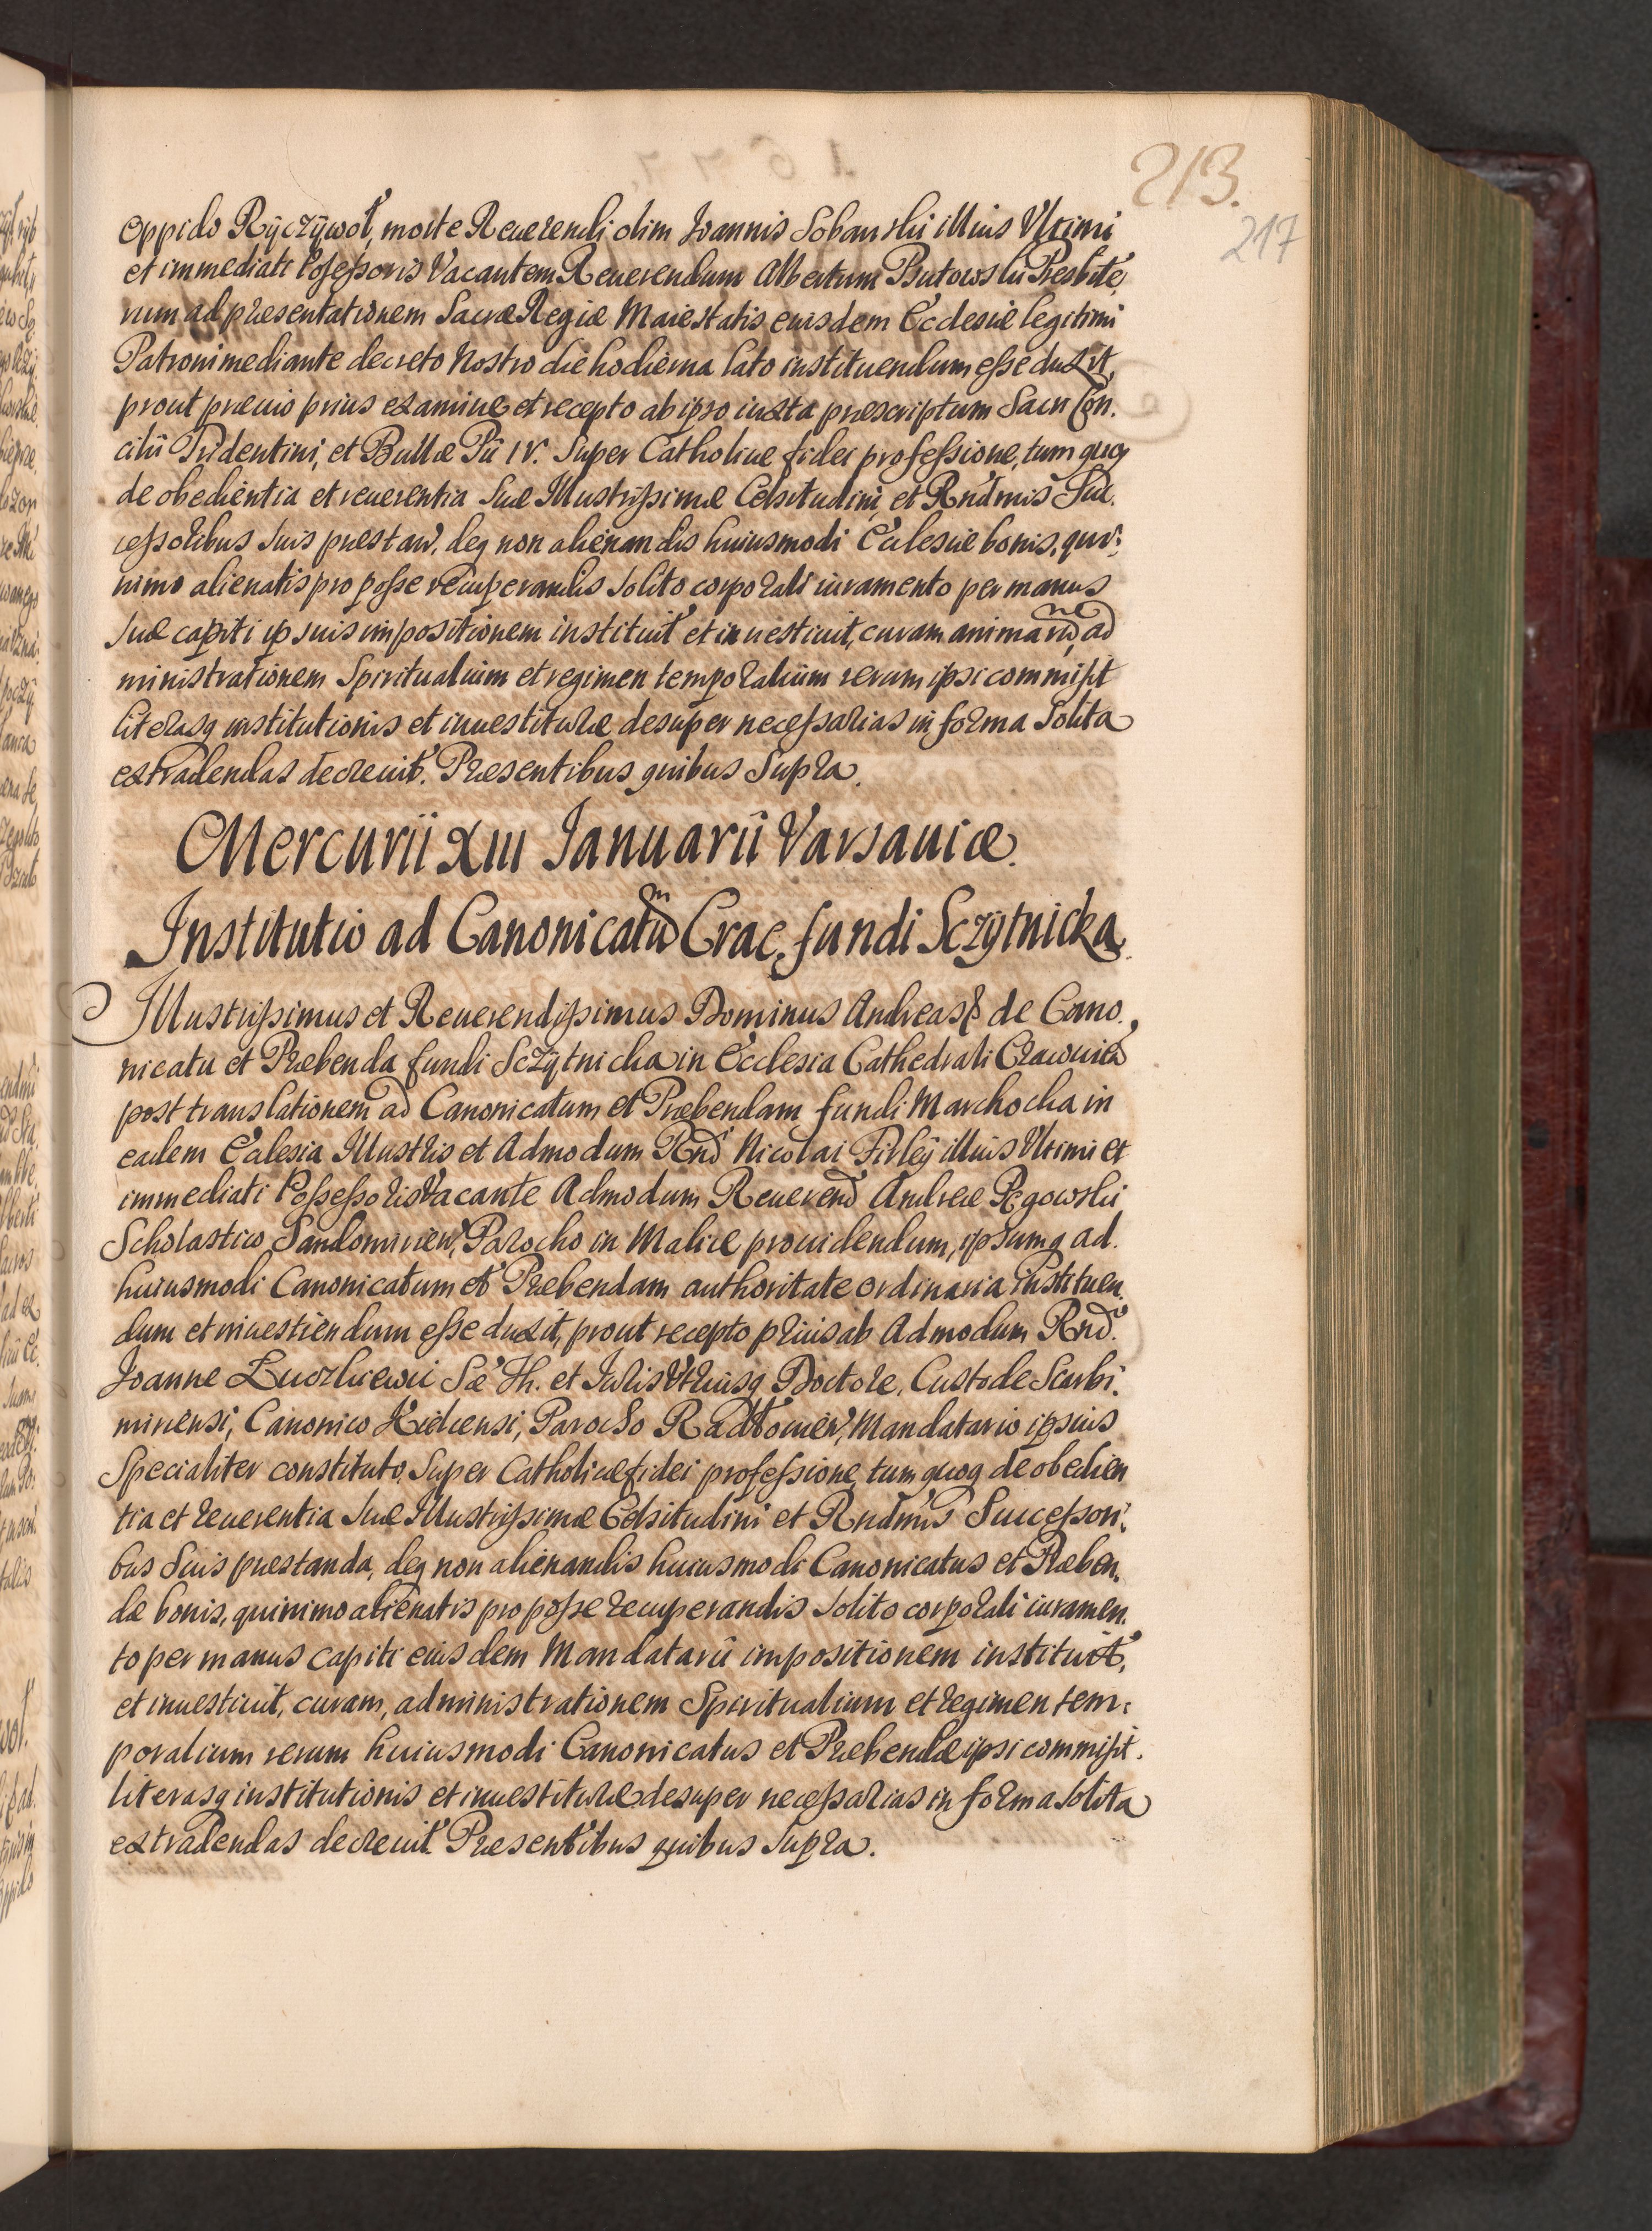 213.
217
oppido Rÿczÿwoł, morte Reuerendi olim Joannis Sobanski illius Vltimi
et immediati Possessoris Vacantem Reuerendum Albertum Butowski Presbite,
rum ad præsentationem Sacræ Regiæ Maiestatis eiusdem Ecclesiæ legitimi
Patroni mediante decreto Nostro die hodierna lato instituendum esse duxit,
prout præuio prius examine et recepto ab ipso iuxta præscriptum Sacri Con.
cilii Tridentini, et Bullæ Pii IV. Super Catholicæ fidei professione, tum quoq
de obedientia et reuerentia Suæ Illustrissimæ Celsitudini, et Rndmis Suc.
cessoribus Suis præstan, deq non alienandis huiusmodi Ecclesiæ bonis, qui:
nimo alienatis pro posse recuperandis Solito corporali iuramento per manus
Suæ capiti ipsius impositionem instituit et inuestiuit, curam animarum, ad
ne
ministrationem Spiritualium et regimen temporalium rerum ipsi commisit
literasq institutionis et inuestituræ desuper necessarias in forma Solita
extradendas decreuit. Præsentibus quibus Supra.
Mercurii XIII Januarii Varsauiæ.
Institutio ad Canonicatum Crac. fundi Sczÿtnicka.
Illustrissimus et Reuerendissimus Dominus Andreas & de Cano.
nicatu et Præbenda fundi Sczÿtnicka in Ecclesia Cathedrali Cracouien
post translationem ad Canonicatum et Præbendam fundi Marchocka in
eadem Ecclesia Illustris et Admodum Rnd Nicolai Firleÿ illius Vltimi et
immediati Possessoris Vacante Admodum Reuerend Andreæ Pęgowski
Scholastico Sandomirien, Parocho in Malice prouidendum, ipsumq ad.
huiusmodi Canonicatum et Præbendam authoritate ordinaria instituen.
dum et inuestiendum esse duxit, prout recepto prius ab Admodum Rnd.
Joanne Łuczkiewic Sæ Th. et Juris Vtriusq Doctore, Custode Scarbi.
miriensi, Canonico Kielcensi, Parocho Radłouien, Mandatario ipsius
Specialiter constituto, Super Catholicæ fidei professione, tum quoq de obedien
tia et reuerentia Suæ Illustrissimæ Celsitudini et Rndmis Successori.
bus Suis præstanda, deq non alienandis huiusmodi Canonicatus et Præben.
dæ bonis, quinimo alienatis pro posse recuperandis Solito corporali iuramen.
to per manus capiti eiusdem Mandatarii impositionem instituit,
et inuestiuit, curam, administrationem Spiritualium et regimen tem:
poralium rerum huiusmodi Canonicatus et Præbendæ ipsi commisit.
literasq institutionis et inuestituræ desuper necessarias in forma Solita
extradendas decreuit. Præsentibus quibus Supra.